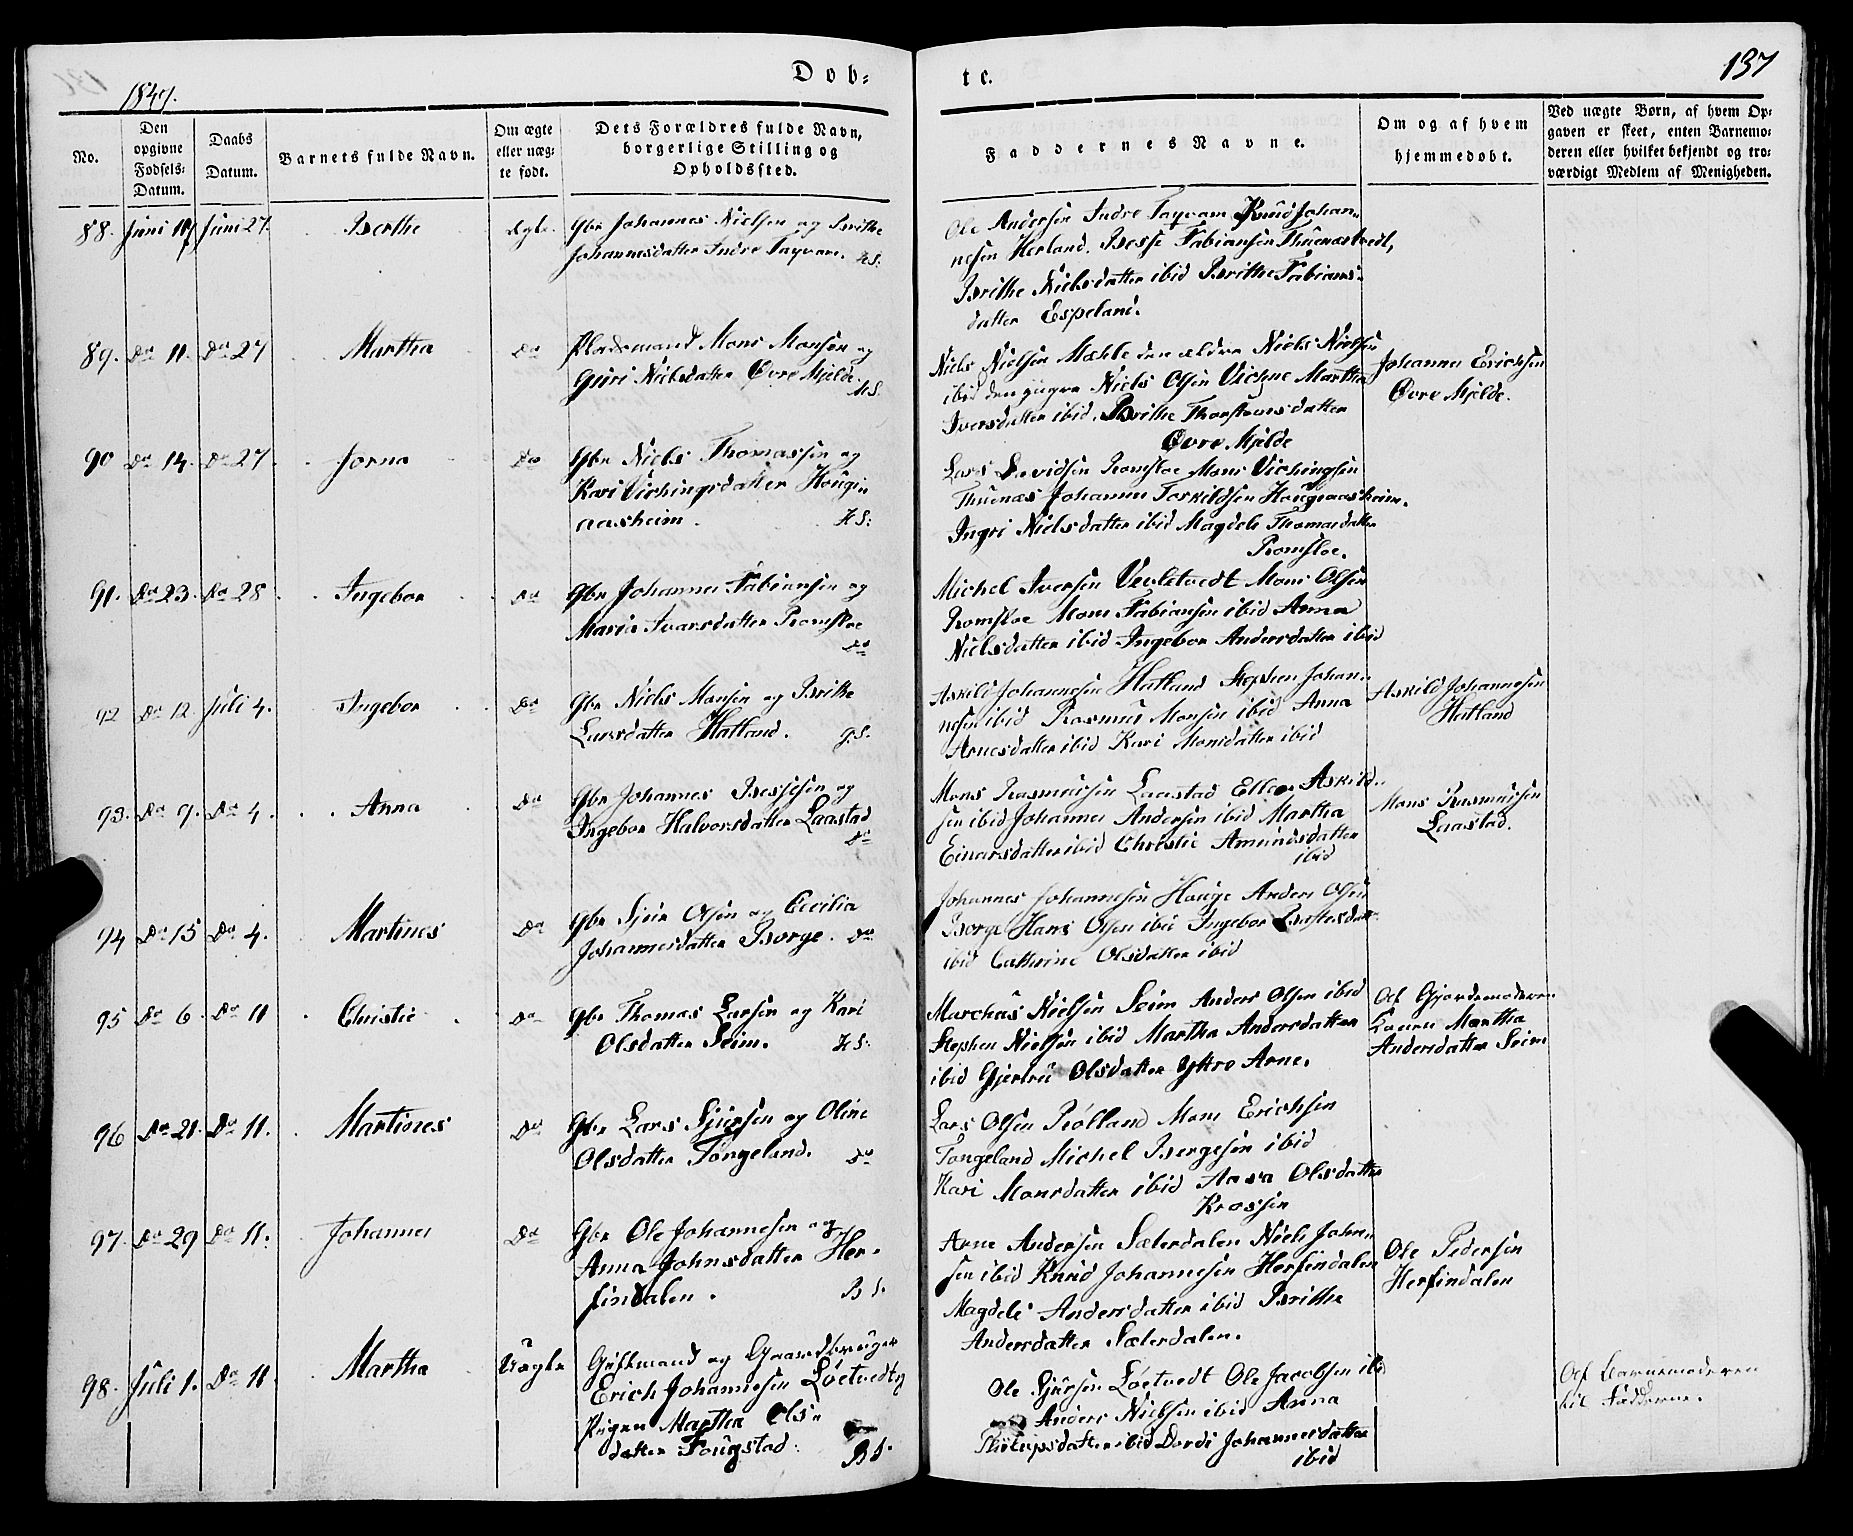 Døb-
te.
137
1847.
No.
Den opgivne Fødsels-Datum.
Daabs Datum.
Barnets fulde Navn.
Om ægte eller uæg-te født.
Dets Forældres fulde Navn, borgerlige Stilling og Opholdssted.
Faddernes Navne.
Om og af hvem hjemmedøbt.
Ved uægte Børn, af hvem Op-gaven er skeet, enten Barnemo-deren eller hvilket bekjendt og tro-værdigt Medlem af Menigheden.
88. Juni 19 Juni 27. Berthe Egte.
Gbr Johannes Nielsen og Brithe
Johannesdatter Indre Tagvam. HS.
Ole Andersen Indre Tagvam Knud Johan-
nesen Herland. Besse Fabiansen Thuenæstvedt,
Brithe Nielsdatter ibid Brithe Fabians-
datter Espeland.
89. Do 11. Do 27 Martha Do
Pladsmand Mons Monsen og
Guri Nielsdatter Øvre Mjelde
HS.
Niels Nielsen Mæhle den ældre Niels Nielsen
ibid den yngre Niels Olsen Vichne Martha
Iversdatter ibid. Brithe Thorstensdatter
Øvre Mjelde
Johannes Erichsen
Øvre Mjelde.
90 Do 14. Do 27. Jorna Do
Gbr Niels Thomassen og
Kari Vichingsdatter Hougn
aasheim. HS:
Lars Davidsen Romsloe Mons Vichingsen
Thuenæs Johannes Torkildsen Hougnaasheim.
Ingri Nielsdatter ibid Magdele Thomasdatter
Romsloe.
91. Do 23. Do 28 Ingebor Do
Gbr Johannes Fabiansen og
Maria Ivarsdatter Romsloe
Do
Michel Iversen Vevletvedt Mons Olsen
Romsloe Mons Fabiansen ibid Anna
Nielsdatter ibid Ingebor Andersdatter ibid
92 Do 12. Juli 4. Ingebor Do
Gbr Niels Monsen og Brithe
Larsdatter Hatland. g.S.
Askild Johannesen Hatland Stephen Johan-
nesen ibid Rasmus Monsen ibid Anna
Arnesdatter ibid Kari Monsdatter ibid
Askild Johannesen
Hatland
93. Do 9. Do 4. Anna Do
Gbr Johannes Bessesen og
Ingebor Halvorsdatter Laastad
Do
Mons Rasmussen Laastad Elleo Askild-
sen ibid Johannes Andersen ibid Martha
Einarsdatter ibid Christie Amundsdatter
ibid
Mons Rasmussen
Laastad.
94 Do 15 Do 4. Martines Do
Gbr Sjur Olsen og Cecilia
Johannesdatter Borge. Do
Johannes Johannesen Houge Anders Olsen
Borge Hans Olsen ibid Ingebor
ibid Cathrine Olsdatter ibid
95 Do 6. Do 11 Christie Do
Gbr Thomas Larsen og Kari
Olsdatter Seim. HS:
Marchus Nielsen Seim Anders Olsen ibid
Stephen Nielsen ibid Martha Andersdatter
ibid Gjertru Olsdatter Yttre Arne.
Af Gjordemoderen
Martha
Andersdatter Seim
96 Do 21. Do 11. Martines Do
Gbr Lars Sjursen og Oline
Olsdatter Tongeland. Do
Lars Olsen Røtland Mons Erichsen
Tongeland Michel Bergesen ibid
Kari Monsdatter ibid Aasa Olsdatter
Krossen
97. Do 29 Do 11. Johannes Do
Gbr Ole Johannesen og
Anna Johnsdatter Her-
findalen. BS.
Arne Andersen Sælerdalen Niels John-
sen ibid Knud Johannesen Herfindalen
Magdeli Andersdatter ibid Brithe
Andersdatter Sælerdalen.
Ole Pedersen
Herfindalen
98. Juli 1. Do 11 Martha Uægte
Giftmand og Gaardbruger
Erich Johannesen Løetvedt og
Pigen Martha Ols-
datter Fougstad. BS.
Ole Sjursen Løetvedt Ole Jacobsen ibd
Anders Nielsen ibid Anna
Philipsdatter ibid Dordi Johannesdatter
ibid
Af Barnemoderen
til Fadderne.